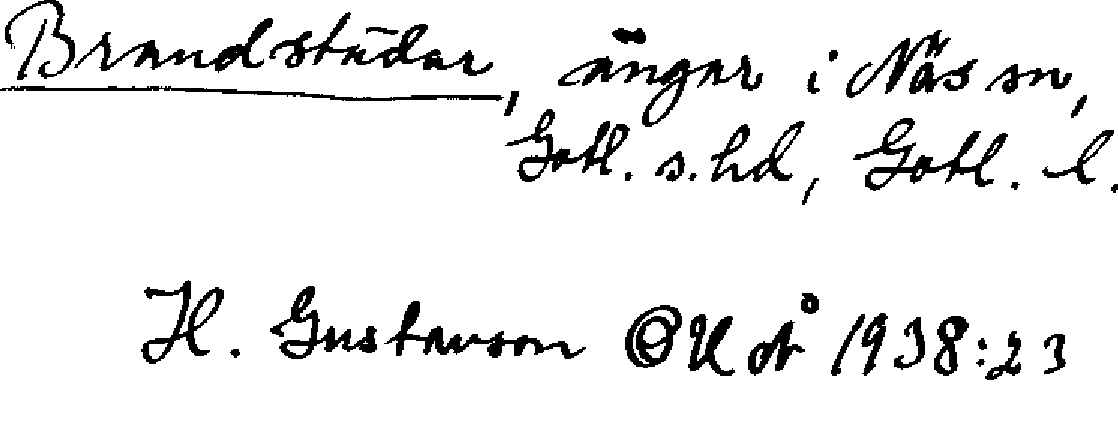 Brandstüdar, ängar i Näs sn,
Gotl. s. hd, Gotl. l.
H. Gustavson OUÅ 1938:23